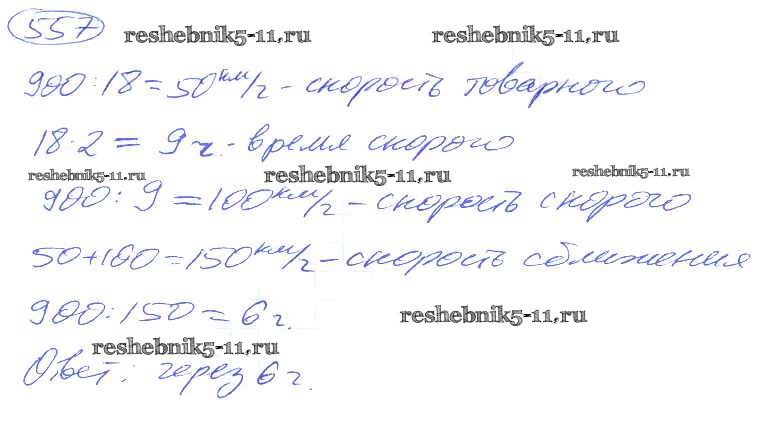 557 reshebnik5-11,ru reshebnik5-11,ru
900:18=50км/г - скорость товарного
18·2 = 9ч. - время скорого
reshebnik5-11.ru reshebnik5-11,ru reshebnik5-11.ru
900:9=100км/г - скорость скорого
50+100=150км/г - скорость сближения
900:150=6г.
reshebnik5-11,ru
reshebnik5-11,ru
Ответ: через 6г.